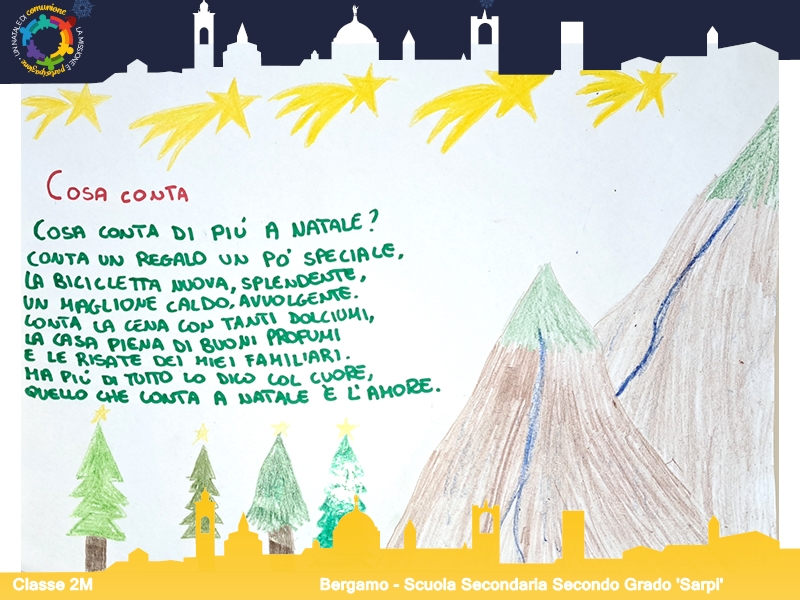 UN NATALE DI comunione
LA MISSIONE È partecipazione
COSA CONTA
COSA CONTA DI PIÚ A NATALE?
CONTA UN REGALO UN PO' SPECIALE,
LA BICICLETTA NUOVA, SPLENDENTE,
UN MAGLIONE CALDO, AVVOLGENTE.
CONTA LA CENA CON TANTI DOLCIUMI,
LA CASA PIENA DI BUONI PROFUMI
E LE RISATE DEI MIEI FAMILIARI.
MA PIÚ DI TUTTO LO DICO COL CUORE,
QUELLO CHE CONTA A NATALE È L'AMORE.
Classe 2M
Bergamo - Scuola Secondaria Secondo Grado 'Sarpi'